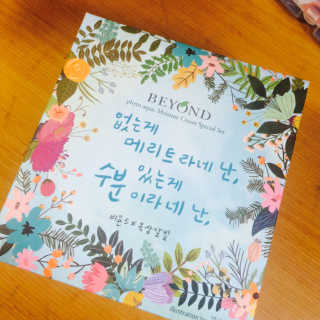 BEYOND
phyto aqua Moisture Cream Special Set
없는게
메리트라네 난,
수분 있는게
이라네 난,
비욘드x옥상달빛
illustration by